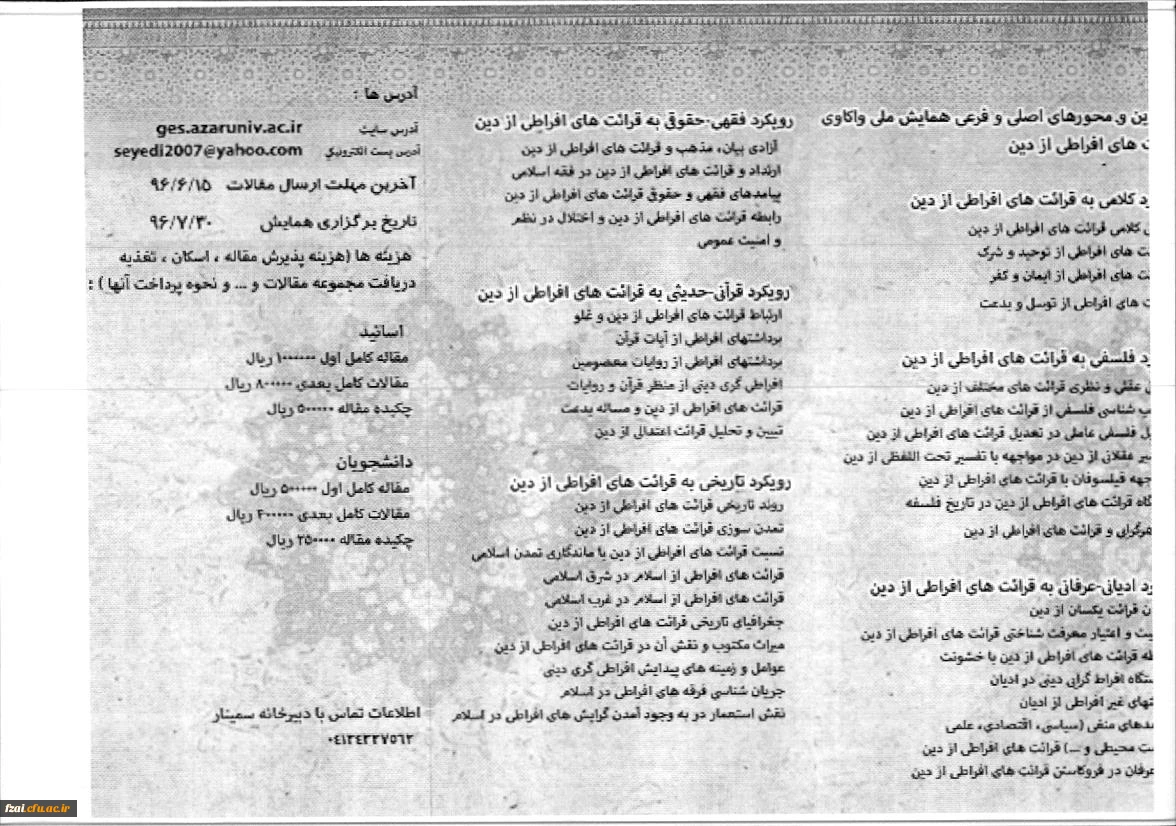 ین و محورهای اصلی و فرعی همایش ملی واکاوی
ت های افراطی از دین
رد کلامی به قرائت های افراطی از دین
ی کلامی قرائت های افراطی از دین
ت های افراطی از توحید و شرک
ت های افراطی از ایمان و کفر
ت های افراطی از توسل و بدعت
رد فلسفی به قرائت های افراطی از دین
ی عقلی و نظری قرائت های مختلف از دین
ب شناسی فلسفی از قرائت های افراطی از دین
یل فلسفی عاملی در تعدیل قرائت های افراطی از دین
یر عقلانی از دین در مواجهه با تفسیر تحت اللفظی از دین
جهه فیلسوفان با قرائت های افراطی از دین
گاه قرائت های افراطی از دین در تاریخ فلسفه
هرگرایی و قرائت های افراطی از دین
رد ادیانی-عرفانی به قرائت های افراطی از دین
ن قرائت یکسان از دین
یت و اعتبار معرفت شناختی قرائت های افراطی از دین
طه قرائت های افراطی از دین با خشونت
ستگاه افراط گرایی دینی در ادیان
تهای غیر افراطی از ادیان
مدهای منفی (سیاسی، اقتصادی، علمی
ست محیطی و ...) قرائت های افراطی از دین
عرفان در فروکاستن قرائت های افراطی از دین
رویکرد فقهی-حقوقی به قرائت های افراطی از دین
آزادی بیان، مذهب و قرائت های افراطی از دین
ارتداد و قرائت های افراطی از دین در فقه اسلامی
پیامدهای فقهی و حقوقی قرائت های افراطی از دین
رابطه قرائت های افراطی از دین و اختلال در نظم
و امنیت عمومی
رویکرد قرآنی-حدیثی به قرائت های افراطی از دین
ارتباط قرائت های افراطی از دین و غلو
برداشتهای افراطی از آیات قرآن
برداشتهای افراطی از روایات معصومین
افراطی گری دینی از منظر قرآن و روایات
قرائت های افراطی از دین و مساله بدعت
تبیین و تحلیل قرائت اعتدالی از دین
رویکرد تاریخی به قرائت های افراطی از دین
روند تاریخی قرائت های افراطی از دین
تمدن سوزی قرائت های افراطی از دین
نسبت قرائت های افراطی از دین با ماندگاری تمدن اسلامی
قرائت های افراطی از اسلام در شرق اسلامی
قرائت های افراطی از اسلام در غرب اسلامی
جغرافیای تاریخی قرائت های افراطی از دین
میراث مکتوب و نقش آن در قرائت های افراطی از دین
عوامل و زمینه های پیدایش افراطی گری دینی
جریان شناسی فرقه های افراطی در اسلام
نقش استعمار در به وجود آمدن گرایش های افراطی در اسلام
آدرس ها :
آدرس سایت ges.azaruniv.ac.ir
آدرس پست الکترونیکی seyedi2007@yahoo.com
آخرین مهلت ارسال مقالات ۹۶/۶/۱۵
تاریخ برگزاری همایش ۹۶/۷/۳۰
هزینه ها (هزینه پذیرش مقاله ، اسکان ، تغذیه
دریافت مجموعه مقالات و ... و نحوه پرداخت آنها ) :
اساتید
مقاله کامل اول ۱۰۰۰۰۰۰ ریال
مقالات کامل بعدی ۸۰۰۰۰۰ ریال
چکیده مقاله ۵۰۰۰۰۰ ریال
دانشجویان
مقاله کامل اول ۵۰۰۰۰۰ ریال
مقالات کامل بعدی ۴۰۰۰۰۰ ریال
چکیده مقاله ۲۵۰۰۰۰ ریال
اطلاعات تماس با دبیرخانه سمینار
۰۴۱۳۴۳۲۷۵۶۲
fzai.cfu.ac.ir